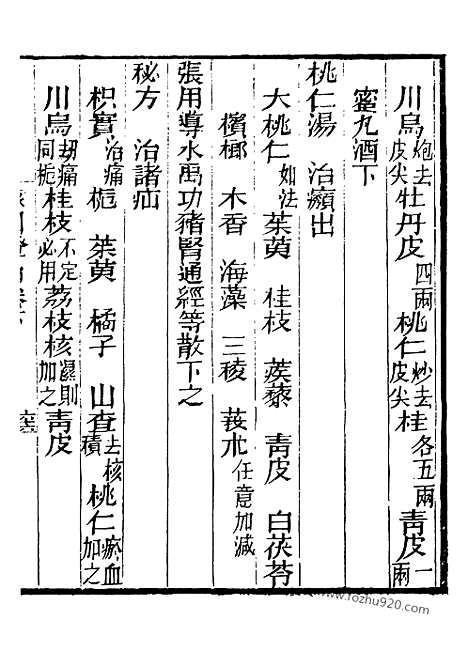 川烏炮去皮尖牡丹皮四兩桃仁炒去皮尖桂各五兩青皮一兩
蜜丸酒下
桃仁湯　治癩出
大桃仁如法茱萸　桂枝　蒺藜　青皮　白茯苓
檳榔　木香　海藻　三稜　莪朮任意加減
張用導水禹功豬腎通經等散下之
秘方　治諸疝
枳實治痛梔　茱萸　橘子　山查去核積桃仁瘀血加之
川烏劫痛同梔桂枝不定必用荔枝核濕則加之青皮
www.fozhu920.com